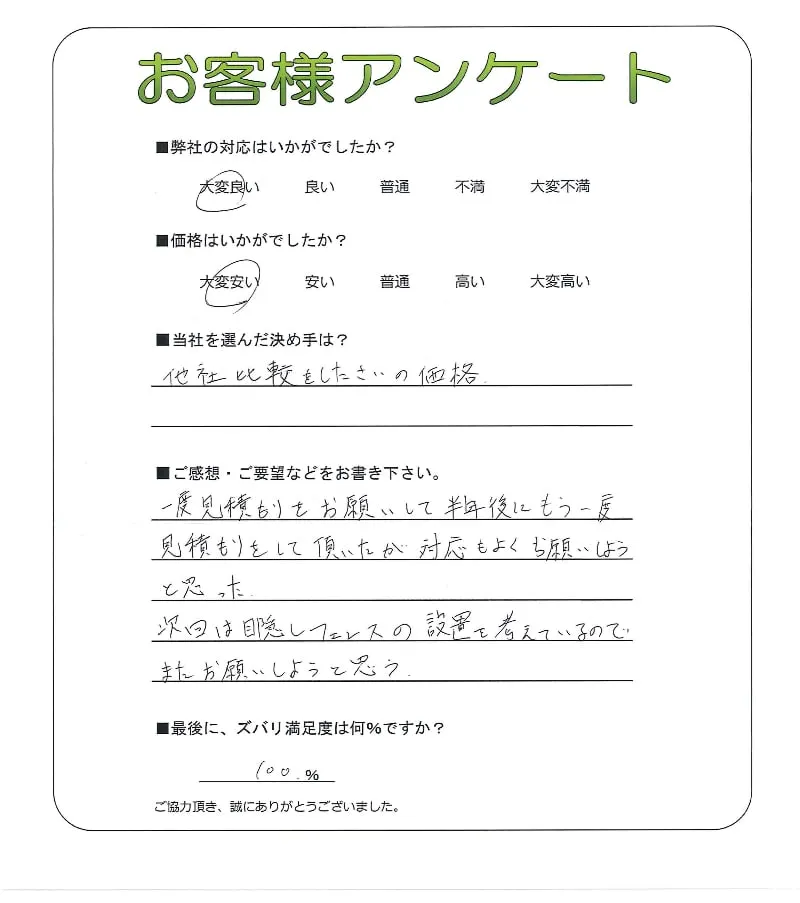 お客様アンケート
■弊社の対応はいかがでしたか？
大変良い 良い 普通 不満 大変不満
■価格はいかがでしたか？
大変安い 安い 普通 高い 大変高い
■当社を選んだ決め手は？
他社比較をしたさいの価格.
■ご感想・ご要望などをお書き下さい。
一度見積もりをお願いして半年後にもう一度
見積もりをして頂いたが対応もよくお願いしよう
と思った.
次回は目隠しフェンスの設置を考えているので
またお願いしようと思う.
■最後に、ズバリ満足度は何%ですか？
100.%
ご協力頂き、誠にありがとうございました。